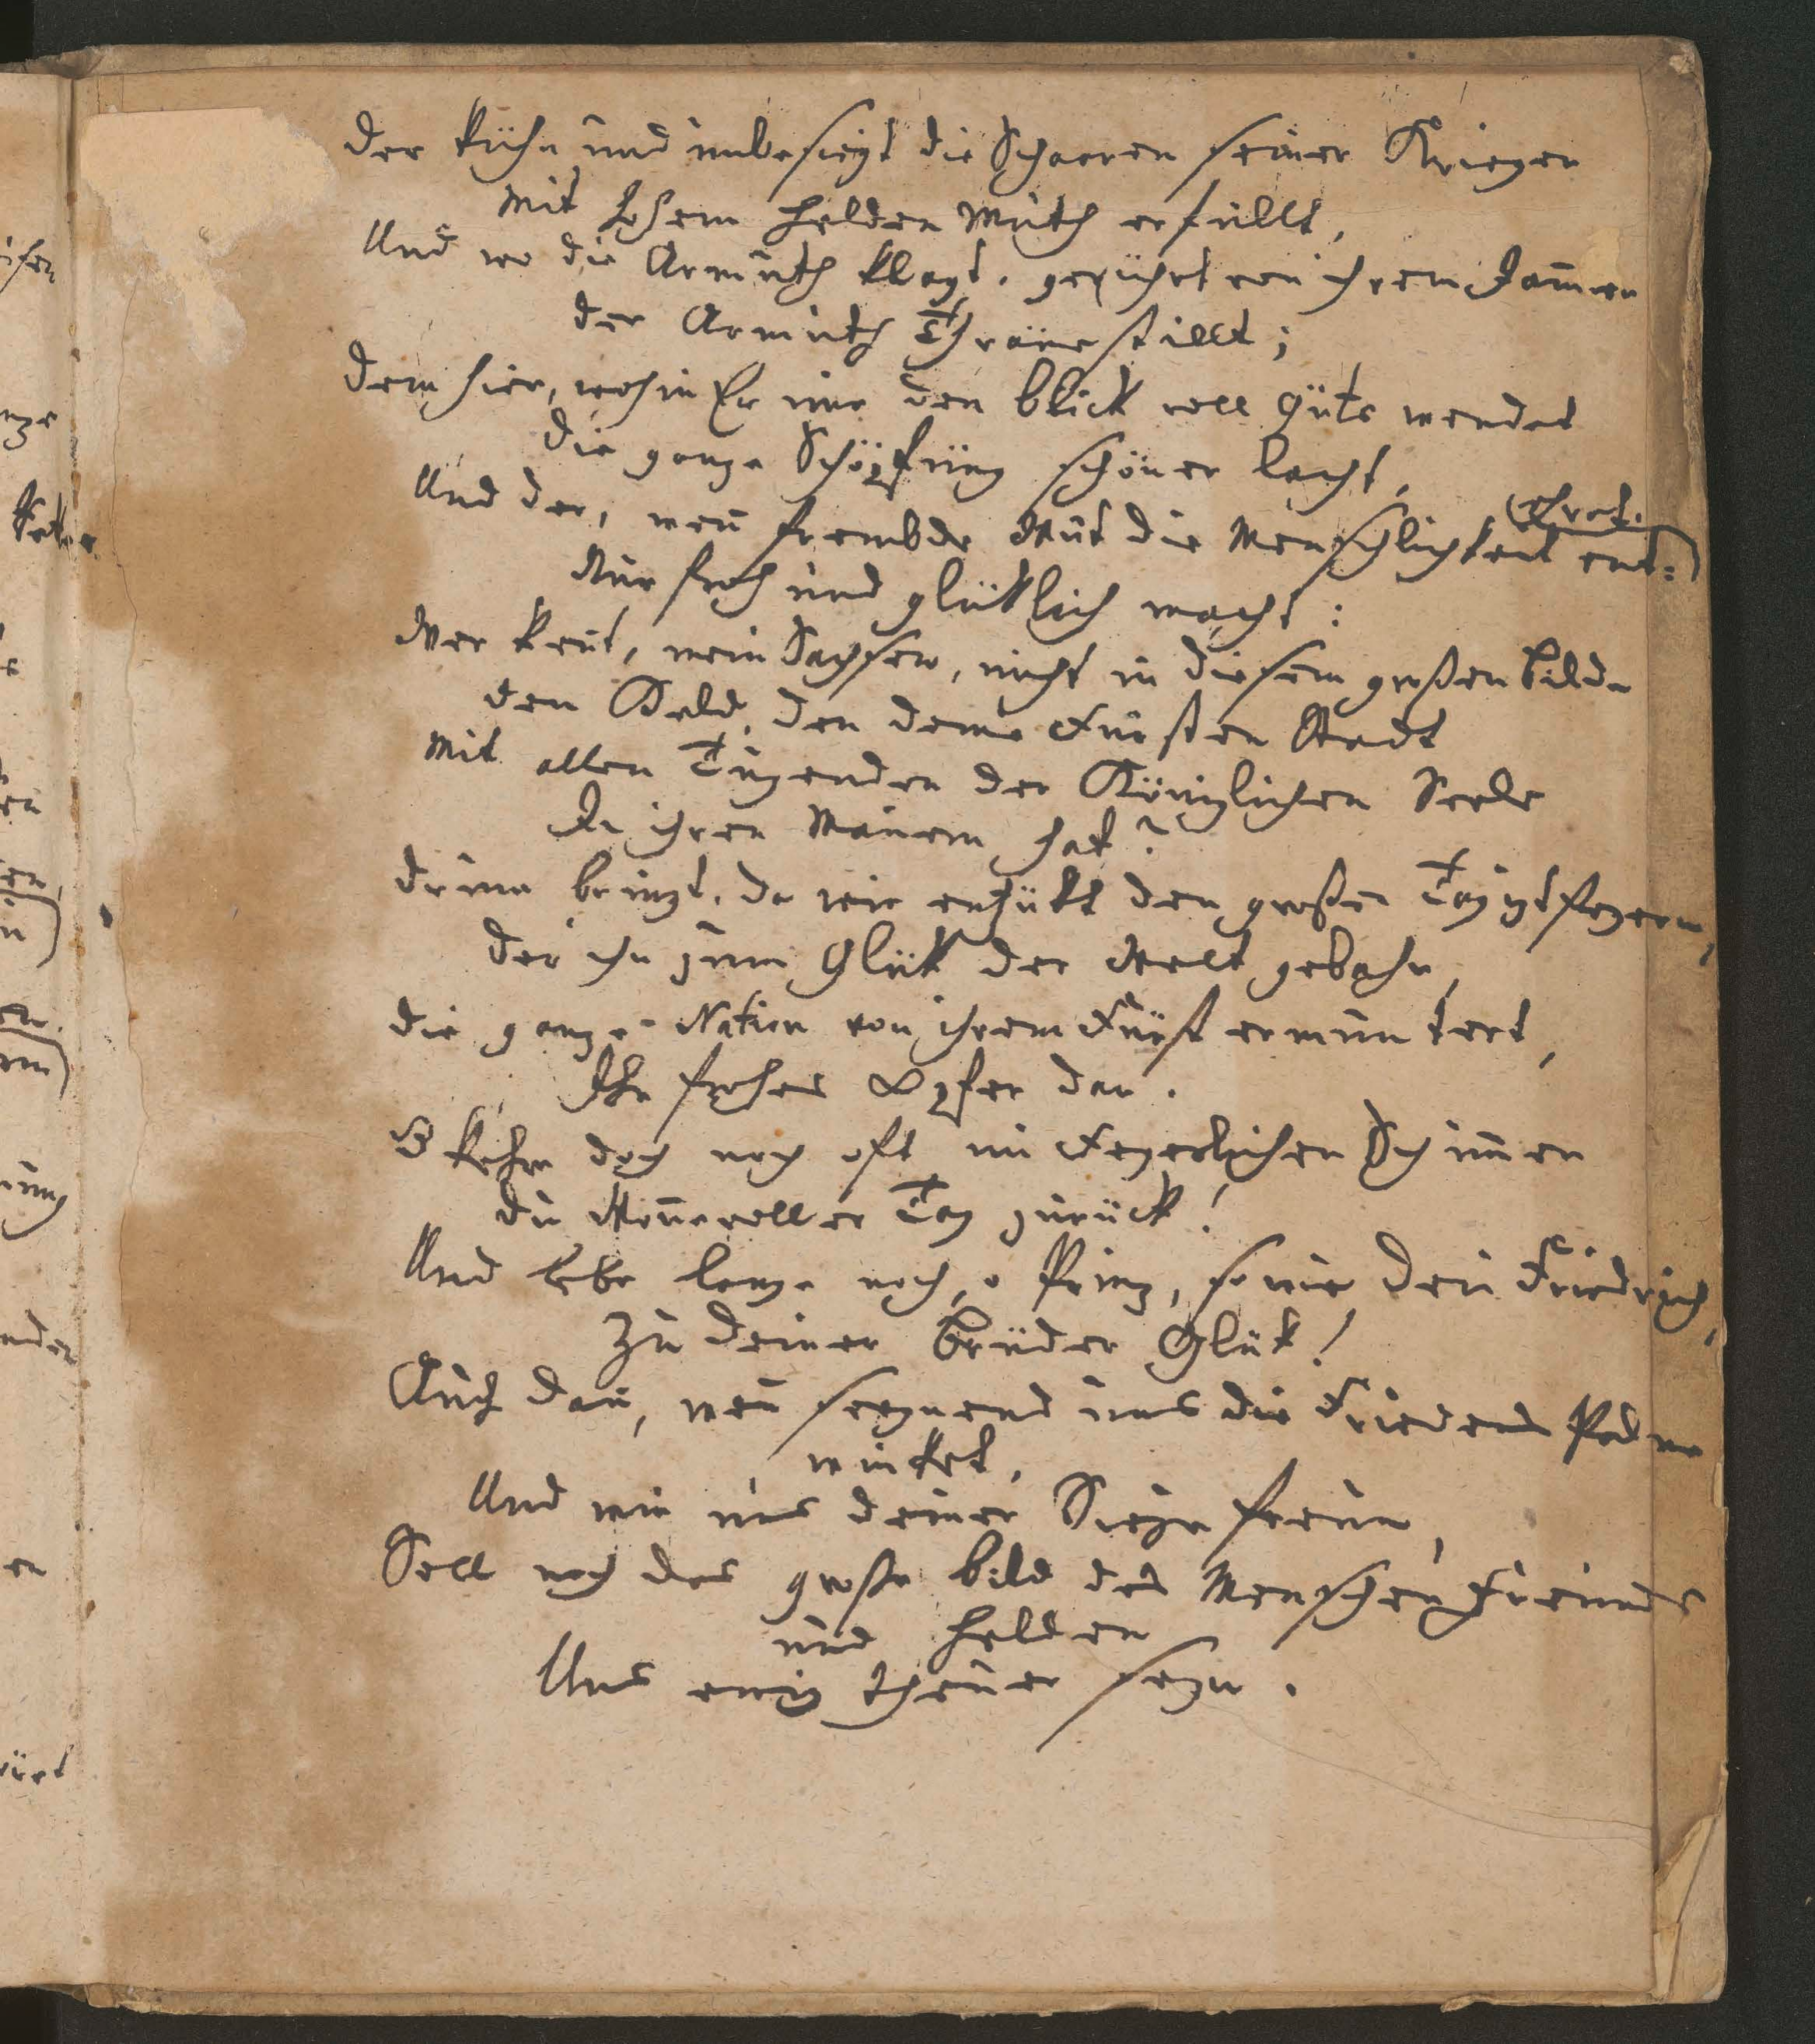 der kühn und unbesiegt die Schaaren seiner Krieger
Mit hohem Helden Muth erfüllt,
Und wo die Armuth klagt, gerührt von ihrem Jam̄er
der Armuth Thräne stillt;
dem hier, wohin Er nur den blick voll Güte wendet
die ganze Schöpfung schöner lacht,
Und der, weñ frembde Wut die Menschlichkeit ent=
ehret.
Nur froh und glüklich macht:
Wer keñt, mein Sachsen, nicht in diesem großen bilde
den Held, den deine Fürsten Stadt
Mit allen Tugenden der Königlichen Seele
In ihren Mauern hat?
drum bringt, da wir entzükt den großen Tag izt feyern,
der ihn zum Glük der Welt gebahr,
die ganze Nation von ihrem Fürst ermuntert,
Ihr frohes Opfer dar.
O kehre doch noch oft im Feyerlichen Schim̄er
du Woñevoller Tag zurück!
Und lebe lange noch, o Prinz, so wie dein Friedrich,
Zu deiner brüder Glük!
Auch dañ, weñ seegnend uns die Friedens Palme
winket,
Und wir uns deiner Siege freun,
Soll noch das große bild des Menschen Freundes
und Helden
Uns ewig theuer seyn.